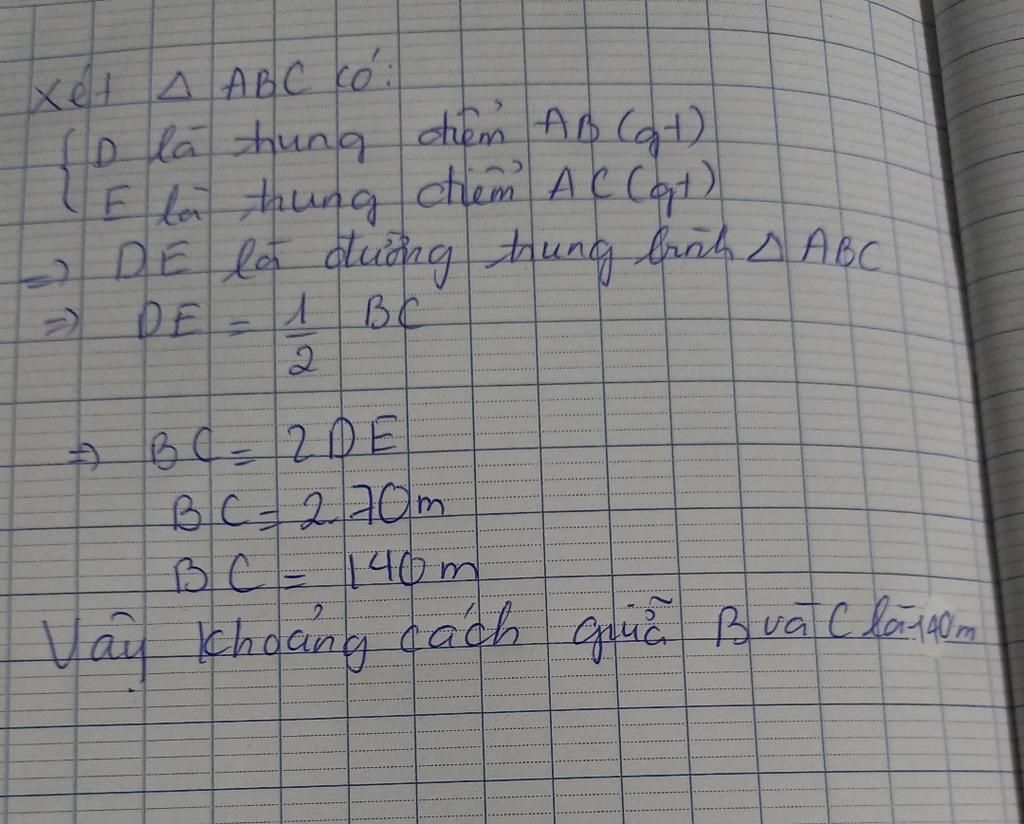 Xét Δ ABC có:
{ D là trung điểm AB (gt)
E là trung điểm AC (gt)
=> DE là đường trung bình Δ ABC
=> DE = 1/2 BC
=> BC = 2DE
BC = 2.70m
BC = 140m
Vậy khoảng cách giữa B và C là 140m